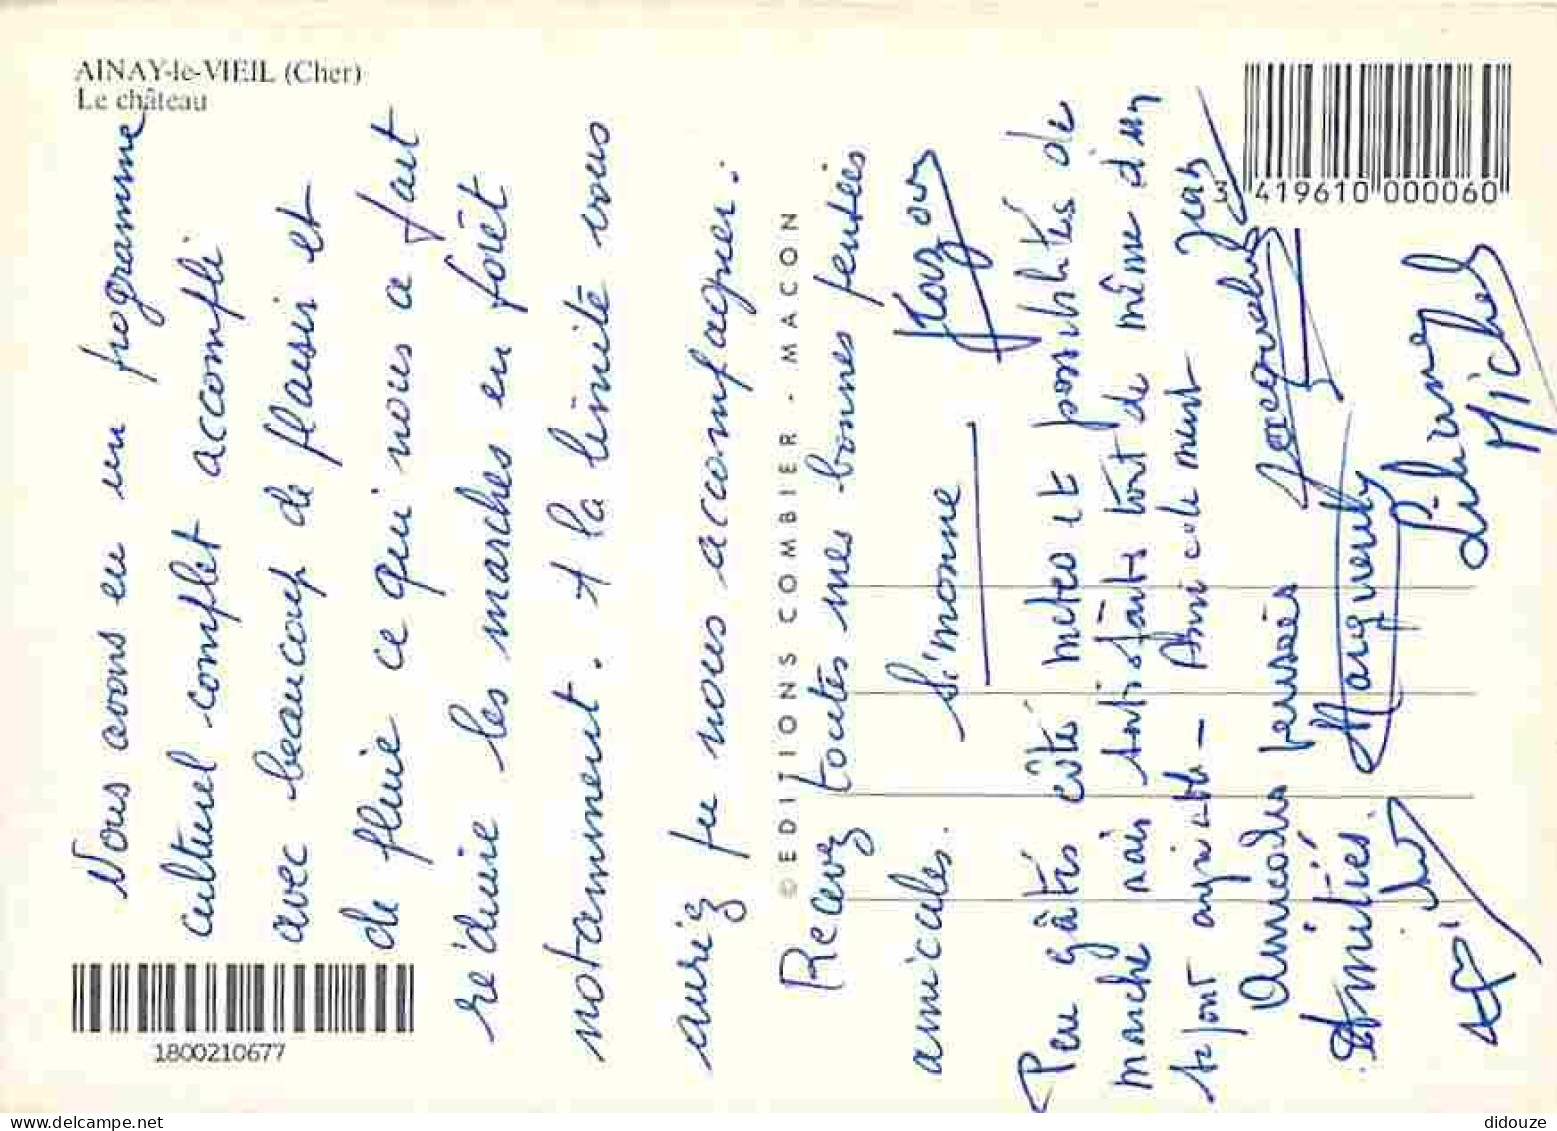 AINAY-le-VIEIL (Cher)
Le château
3 419610 000060
© EDITIONS COMBIER - MACON
1800210677
Nous avons eu un programme
culturel complet accompli
avec beaucoup de plaisir et
de pluie ce qui nous a fait
réduire les marches en forêt
notamment. A la limite vous
auriez pu nous accompagner.
Recevez toutes mes bonnes pensées
amicales. Simonne
Peu gâtés côté météo et possibilités de
marche mais satisfaits tout de même d'un
séjour agréable - Amicalement Jean
Amicales pensées Jacqueline
Amitiés. Marguerite
Liliane
Michel
didouze